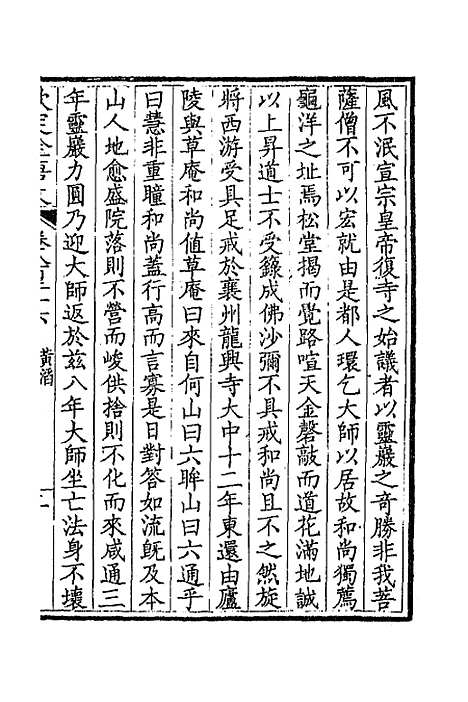 風不泯宣宗皇帝復寺之始議者以靈巖之奇勝非我菩
薩僧不可以宏就由是都人環乞大師以居故和尚獨薦
龜洋之址焉松堂揭而覺路喧天金磬敲而道花滿地誠
以上昇道士不受籙成佛沙彌不具戒和尚且不之然旋
將西游受具足戒於襄州龍興寺大中十二年東還由廬
陵與草庵和尚値草庵曰來自何山曰六眸山曰六通乎
曰慧非重瞳和尚蓋行高而言寡是日對答如流旣及本
山人地愈盛院落則不營而峻供捨則不化而來咸通三
年靈巖力圓乃迎大師返於茲八年大師坐亡法身不壞
欽定全唐文 卷八百二十六 黃滔